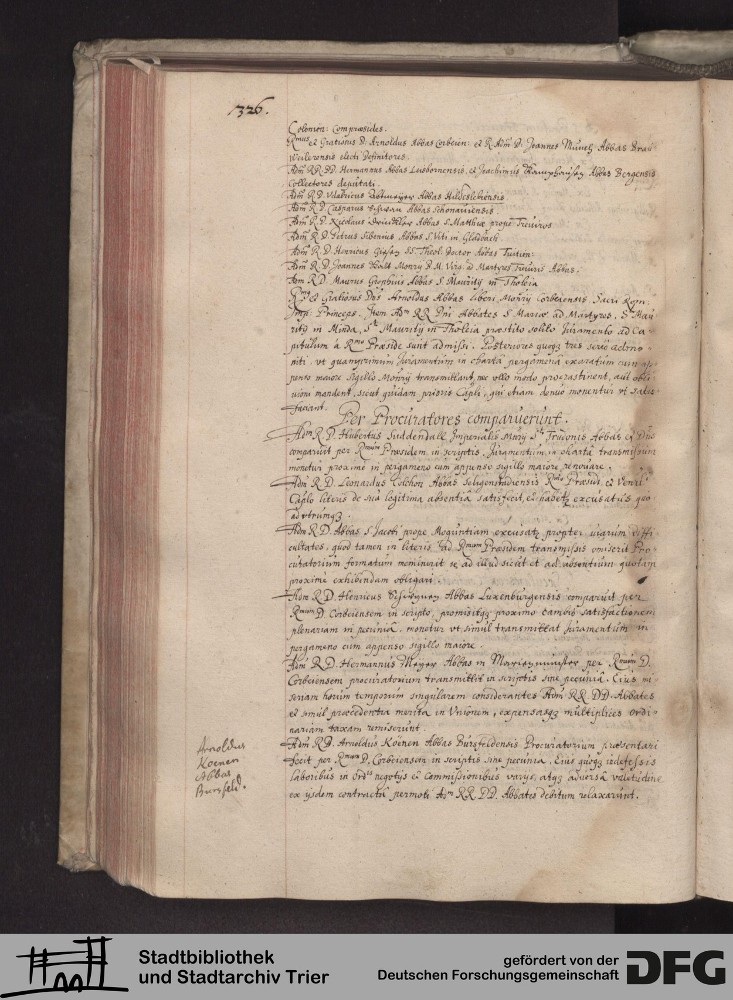 326.
Colonien: Compraesides.
Rmus et Gratiosus D. Arnoldus Abbas Corbeien: et R. Adm D. Joannes Münch Abbas Brau-
Weilerensis electi Definitores.
Adm RR DD. Hermannus Abbas Luisbornensis, et Joachimus Abbas Bergensis
Collectores deputati.
Adm R.D. Vdalricus Abbas Haldeslebiensis
Adm R.D. Casparus Abbas Schonauiensis
Adm R.D. Abbas S. Matthiae prope Treuiros
Adm R.D. Petrus Sibenius Abbas S. Viti in Gladbach
Adm R.D. Henricus SS. Theol. Doctor Abbas Tuitien:
Adm R.D. Joannes Monrÿ B.M. Virg. ad Martyres Treuiris Abbas.
Adm R.D. Maurus Abbas S. Mauritÿ in Tholeia
Rmus et Gratiosus Dns Arnoldus Abbas liberi Monrÿ Corbeiensis Sacri Rom:
Imp: Princeps. Item Adm RR Dni Abbates S. Mariae ad Martyres, S. Mau-
ritÿ in Minda, Sti Mauritÿ in Tholeia praestito solito Juramento ad Ca-
pitulum a Rmo Praeside sunt admissi. Posteriores quoque tres serio admo-
niti, vt quamprimum Juramentum in charta pergamena exaratum cum ap-
penso maiore sigillo Monrÿ transmittant, nec vllo modo procrastinent, aut obli-
uioni mandent, sicut quidam prioris Capli, qui etiam denuo monentur vt satis-
faciant.
Per Procuratores comparuerunt.
Adm R.D. Hubertus Suddendall Imperialis Monrÿ Sti Trudonis Abbas et Dns
comparuit per Rmum Praesidem in scriptis, Juramentum in charta transmissum
monetur proxime in pergameno cum appenso sigillo maiore renouare.
Adm R.D. Leonardus Colchon Abbas Seligenstadiensis Rmo Praesidi et Venli
Caplo literis de sua legitima absentia satisfecit, et habetur excusatus quo
ad vtrumque.
Adm R.D. Abbas S. Jacobi prope Moguntiam excusatur propter viarum diffi-
cultates, quod tamen in literis ad Rmum Praesidem transmissis omiserit Pro-
curatorium formatum meminerit se ad illud sicut et ad absentium quotam
proxime exhibendam obligari.
Adm R.D. Henricus Abbas Luxenburgensis comparuit per
Rmum D. Corbeiensem in scripto, promisitque proximo satisfactionem
plenariam in pecunia. monetur vt simul transmittat Juramentum in
pergameno cum appenso sigillo maiore.
Adm R.D. Hermannus Meyer Abbas in Marienmünster per Rmum D.
Corbeiensem procuratorium transmittit in scriptis sine pecunia. Eius mi-
seriam horum temporum singularem considerantes Adm RR DD. Abbates
et simul praecedentia merita in Vnionem, expensasque multiplices ordi-
nariam taxam remiserunt.
Adm R.D. Arnoldus Köenen Abbas Bursfeldensis Procuratorium praesentari
fecit per Rmum D. Corbeiensem in scriptis sine pecunia. Eius quoque indefessis
laboribus in Ordis negotÿs et Commissionibus varÿs, atque aduersa valetudine
ex ÿsdem contracta permoti Adm RR DD. Abbates debitum relaxarunt.
Arnoldus
Koenen
Abbas
Bursfeld.
Stadtbibliothek
und Stadtarchiv Trier
gefördert von der
Deutschen Forschungsgemeinschaft
DFG